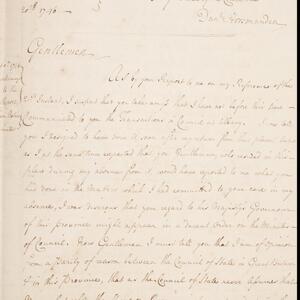 20th. 1746
Dan: Horsmanden
Gentlemen
As by your Report to me on my Reference of the
Instant, I suspect that you take amiss that I have not before this time
Communicated to you the Transactions in Council at Albany. I now tell
you I designed to have done it soon after my return from this place, but
as I at the same time expected that you Gentlemen who resided in this
place during my absence from it would have reported to me what you
had done in the Matters which I had committed to your care in my
absence, I was desirous that your regard to his Majesty's Government
of this Province might appear in a decent Order on the Minutes
of Council. Now Gentlemen I must tell you that I am of opinion
from a parity of reason between the Council of State in Great Britain
& in this Province, that as the Council of State never assumes that